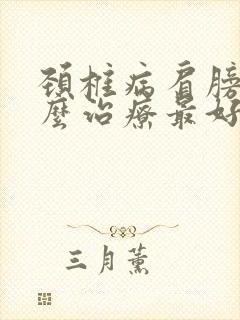 颈椎病肩膀
麽治療最好
三月薰